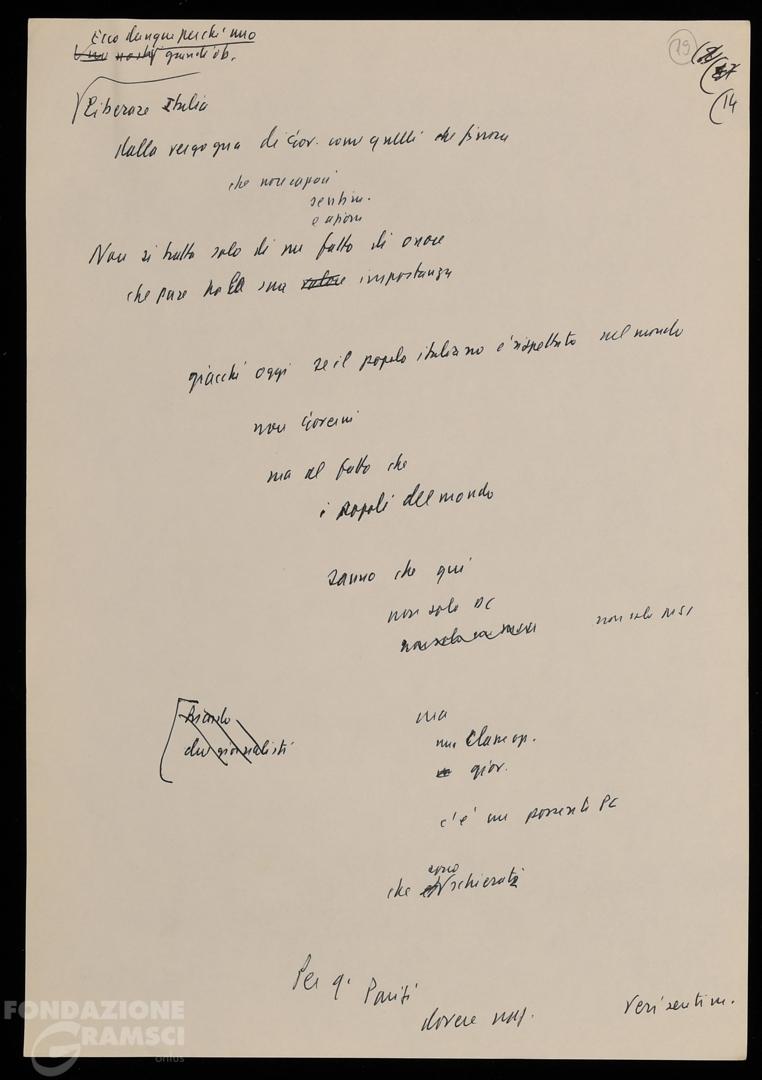 Ecco dunque perché uno
Uno nostri grandi ob.
19
14
Liberare Italia
dalla vergogna di Gov. come quelli che finora
che non capaci
sentim.
e azioni
Non si tratta solo di un fatto di onore
che pure ha la sua valore importanza
giacché oggi se il popolo italiano è rispettato nel mondo
non Governi
ma al fatto che
i popoli del mondo
sanno che qui
non solo DC
non solo MSI
Ricordo
due giornalisti
ma
una Classe op.
giov.
c'è un possente PC
sono
che schierati
Per q. Partiti
dovere naz.
Veri sentim.
FONDAZIONE
GRAMSCI
onlus